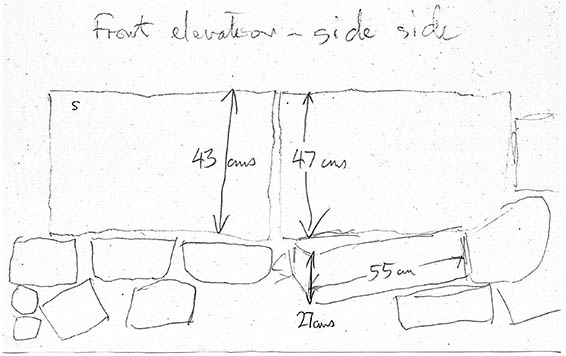 Front elevation - side side
s
43 cms
47 cms
55 cm
27 cms